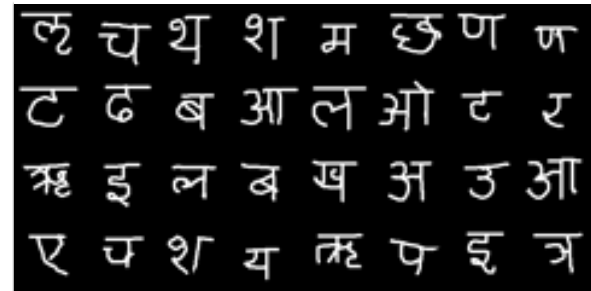 ऌ च थ श म छ ण ण
ट ढ ब आ ल ओ ट र
ऋ इ ल ब ख अ उ आ
ए च श य ऋ प इ त्र